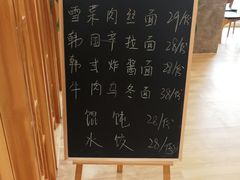 雪菜肉丝面 29/份
韩国辛拉面 28/份
韩式炸酱面 28/份
牛肉乌冬面 38/份
馄饨 22/份
水饺 28/份